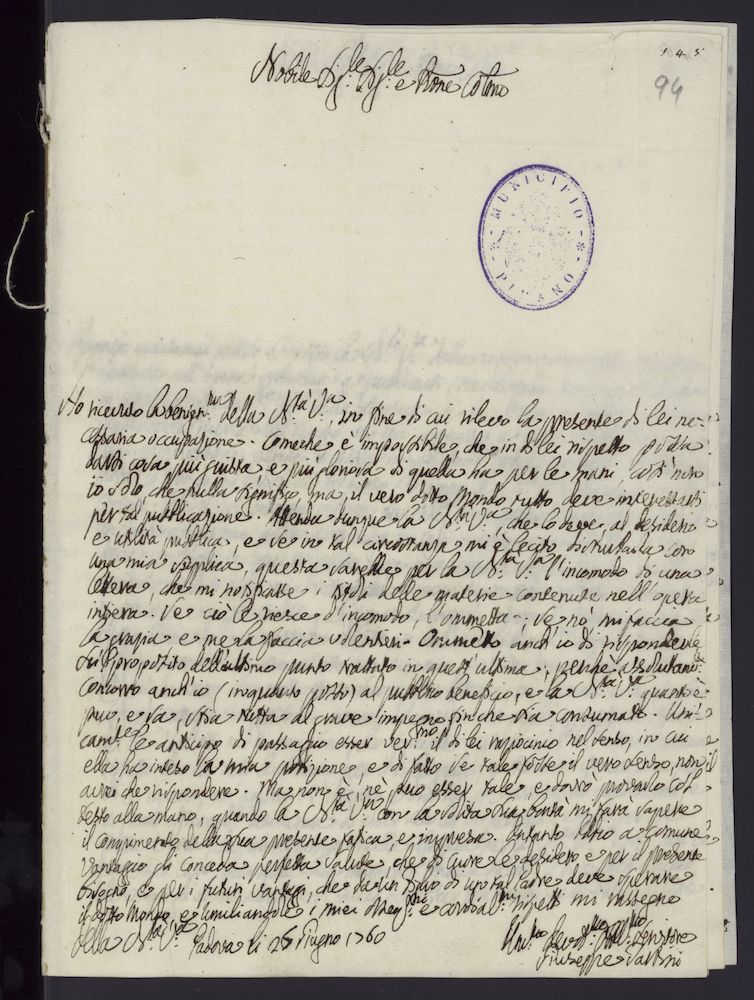 145
94
Nobile Sig.le Sig.le e Prone Colmo
MUNICIPIO
PIRANO
Ho ricevuto la benign.ma della N.ra V.ra, in fine di cui rilevo la presente di lei ne-
cessaria occupazione. Comeche è impossibile, che in di lei rispetto possa
darsi cosa più giusta, e più gloriosa di quella ha per le mani, così non
io solo, che nulla significo, ma il vero dotto Mondo tutto deve interessarsi
per tal pubblicazione. Attenda dunque la N.ra V.ra, che lo deve, al desiderio
e utilità pubblica, e se in tal circostanza mi è lecito disturbarla con
una mia supplica, questa sarebbe per la N.ra V.ra l'incomodo di una
lettera, che mi mostrasse i titoli delle materie contenute nell'opera
intiera. Se ciò le riesce d'incomodo, l'ommetta; se nò, mi faccia
la grazia e me la faccia volentieri. Ommetto anch'io di rispondere
a proposito dell'ultimo punto trattato in quest'ultima, perche assolutam.te
concorro anch'io (in quanto posso) al pubblico beneficio, e la N.ra V.ra quanto è
può, e sa, stia tutta al grave impegno finche sia consumato. Uni-
cam.te le anticipo di passaggio esser ver.mo il di lei raziocinio nel senso, in cui
ella ha inteso la mia posizione, e di fatto se tale fosse il vero senso, non
avrei che rispondere. Ma non è, nè può esser tale, e dovrò provarlo col
testo alla mano, quando la N.ra V.ra con la solita sua bontà mi farà sapere
il compimento della sua presente fatica e impresa. Intanto Iddio a comune
vantaggio gli conceda perfetta salute che di cuore le desidero e per il presente
bisogno, e per i futuri vantaggi, che da un
il dotto Mondo, e umiliandole i miei osseq.mi e cordial.mi rispetti mi rassegno
Della N.ra V.ra Padova li 26 Giugno 1760
Um.mo Dev.mo Obbl.mo Servitore
Giuseppe Tartini